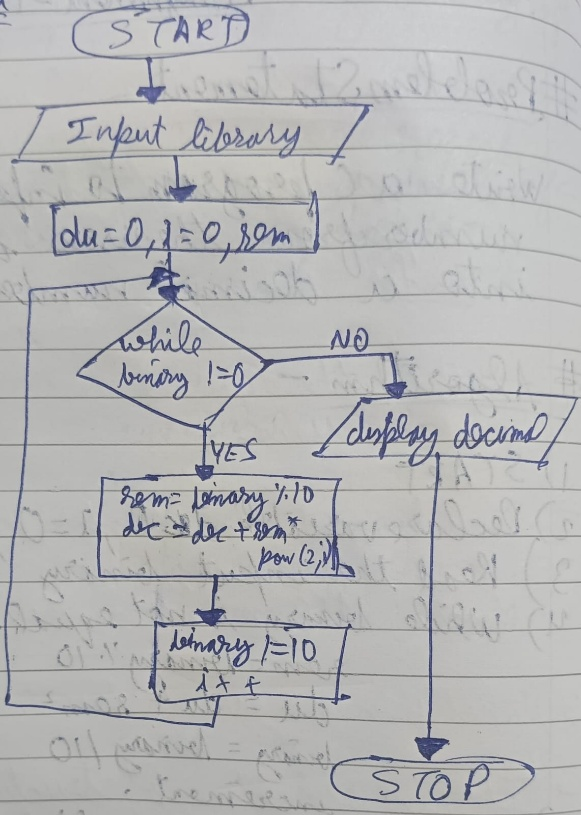 START
Input library
du=0, i=0, rem
while
binary !=0
NO
display decimal
YES
rem= binary % 10
dec = dec + rem*
pow(2,i)
binary /=10
i++
STOP